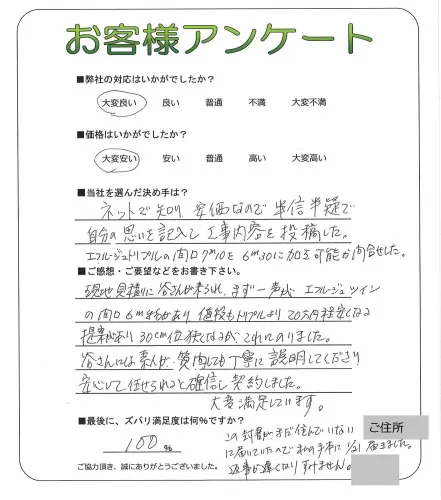 お客様アンケート
■弊社の対応はいかがでしたか？
大変良い 良い 普通 不満 大変不満
■価格はいかがでしたか？
大変安い 安い 普通 高い 大変高い
■当社を選んだ決め手は？
ネットで知り 安価なので半信半疑で
自分の思いを記入して工事内容を投稿した。
エフルージュトリプルの間口 を6m30に加工可能か問合せした。
■ご感想・ご要望などをお書き下さい。
現地見積りに谷さんが来られ、まず一声が エフルージュツイン
の間口6m があり 値段もトリプルより20万程安くなる
提案があり 30cm位狭くなるが これにのりました。
谷さんには素人が質問しても丁寧に説明してくださり
安心して任せられると確信し契約しました。
大変満足しています。
■最後に、ズバリ満足度は何％ですか？
100 %
ご協力頂き、誠にありがとうございました。
ご住所
この封書がまだ住んでいない
に届いていたので私の手本に 1/21 届きました。
返事が遅くなりすみません。